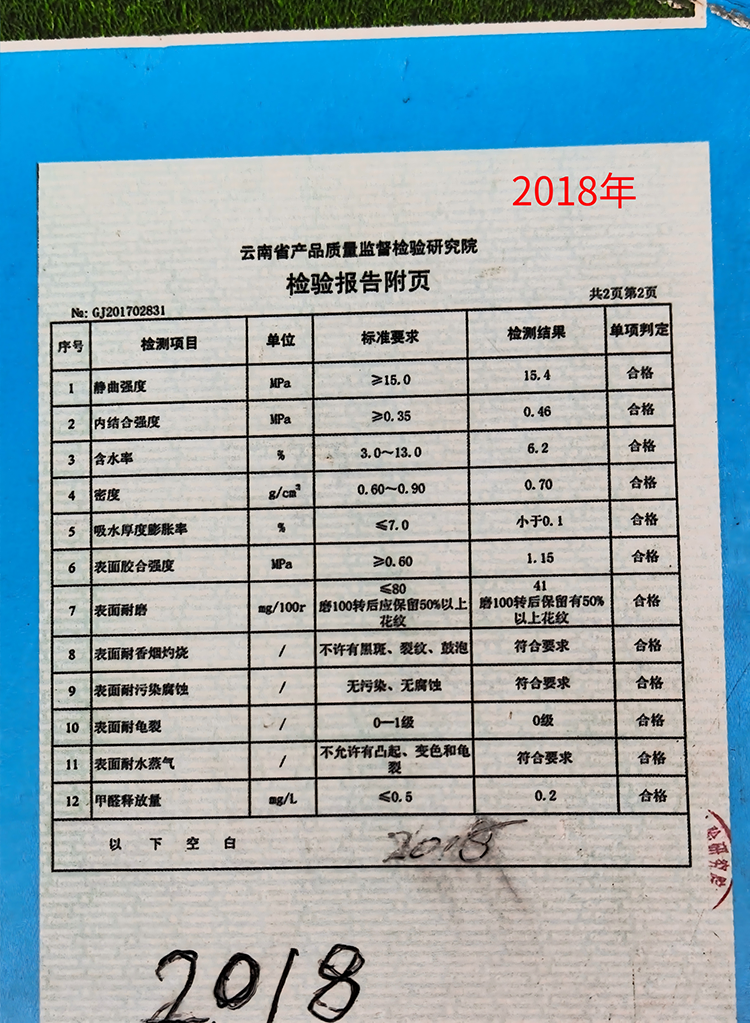 2018年
云南省产品质量监督检验研究院
检验报告附页
№: GJ201702831
共2页第2页
序号 检测项目 单位 标准要求 检测结果 单项判定
1 静曲强度 MPa ≥15.0 15.4 合格
2 内结合强度 MPa ≥0.35 0.46 合格
3 含水率 % 3.0~13.0 6.2 合格
4 密度 g/cm³ 0.60~0.90 0.70 合格
5 吸水厚度膨胀率 % ≤7.0 小于0.1 合格
6 表面胶合强度 MPa ≥0.60 1.15 合格
7 表面耐磨 mg/100r ≤80 磨100转后应保留50%以上花纹 41 磨100转后保留有50%以上花纹 合格
8 表面耐香烟灼烧 / 不许有黑斑、裂纹、鼓泡 符合要求 合格
9 表面耐污染腐蚀 / 无污染、无腐蚀 符合要求 合格
10 表面耐龟裂 / 0—1级 0级 合格
11 表面耐水蒸气 / 不允许有凸起、变色和龟裂 符合要求 合格
12 甲醛释放量 mg/L ≤0.5 0.2 合格
以下空白
2018
2018